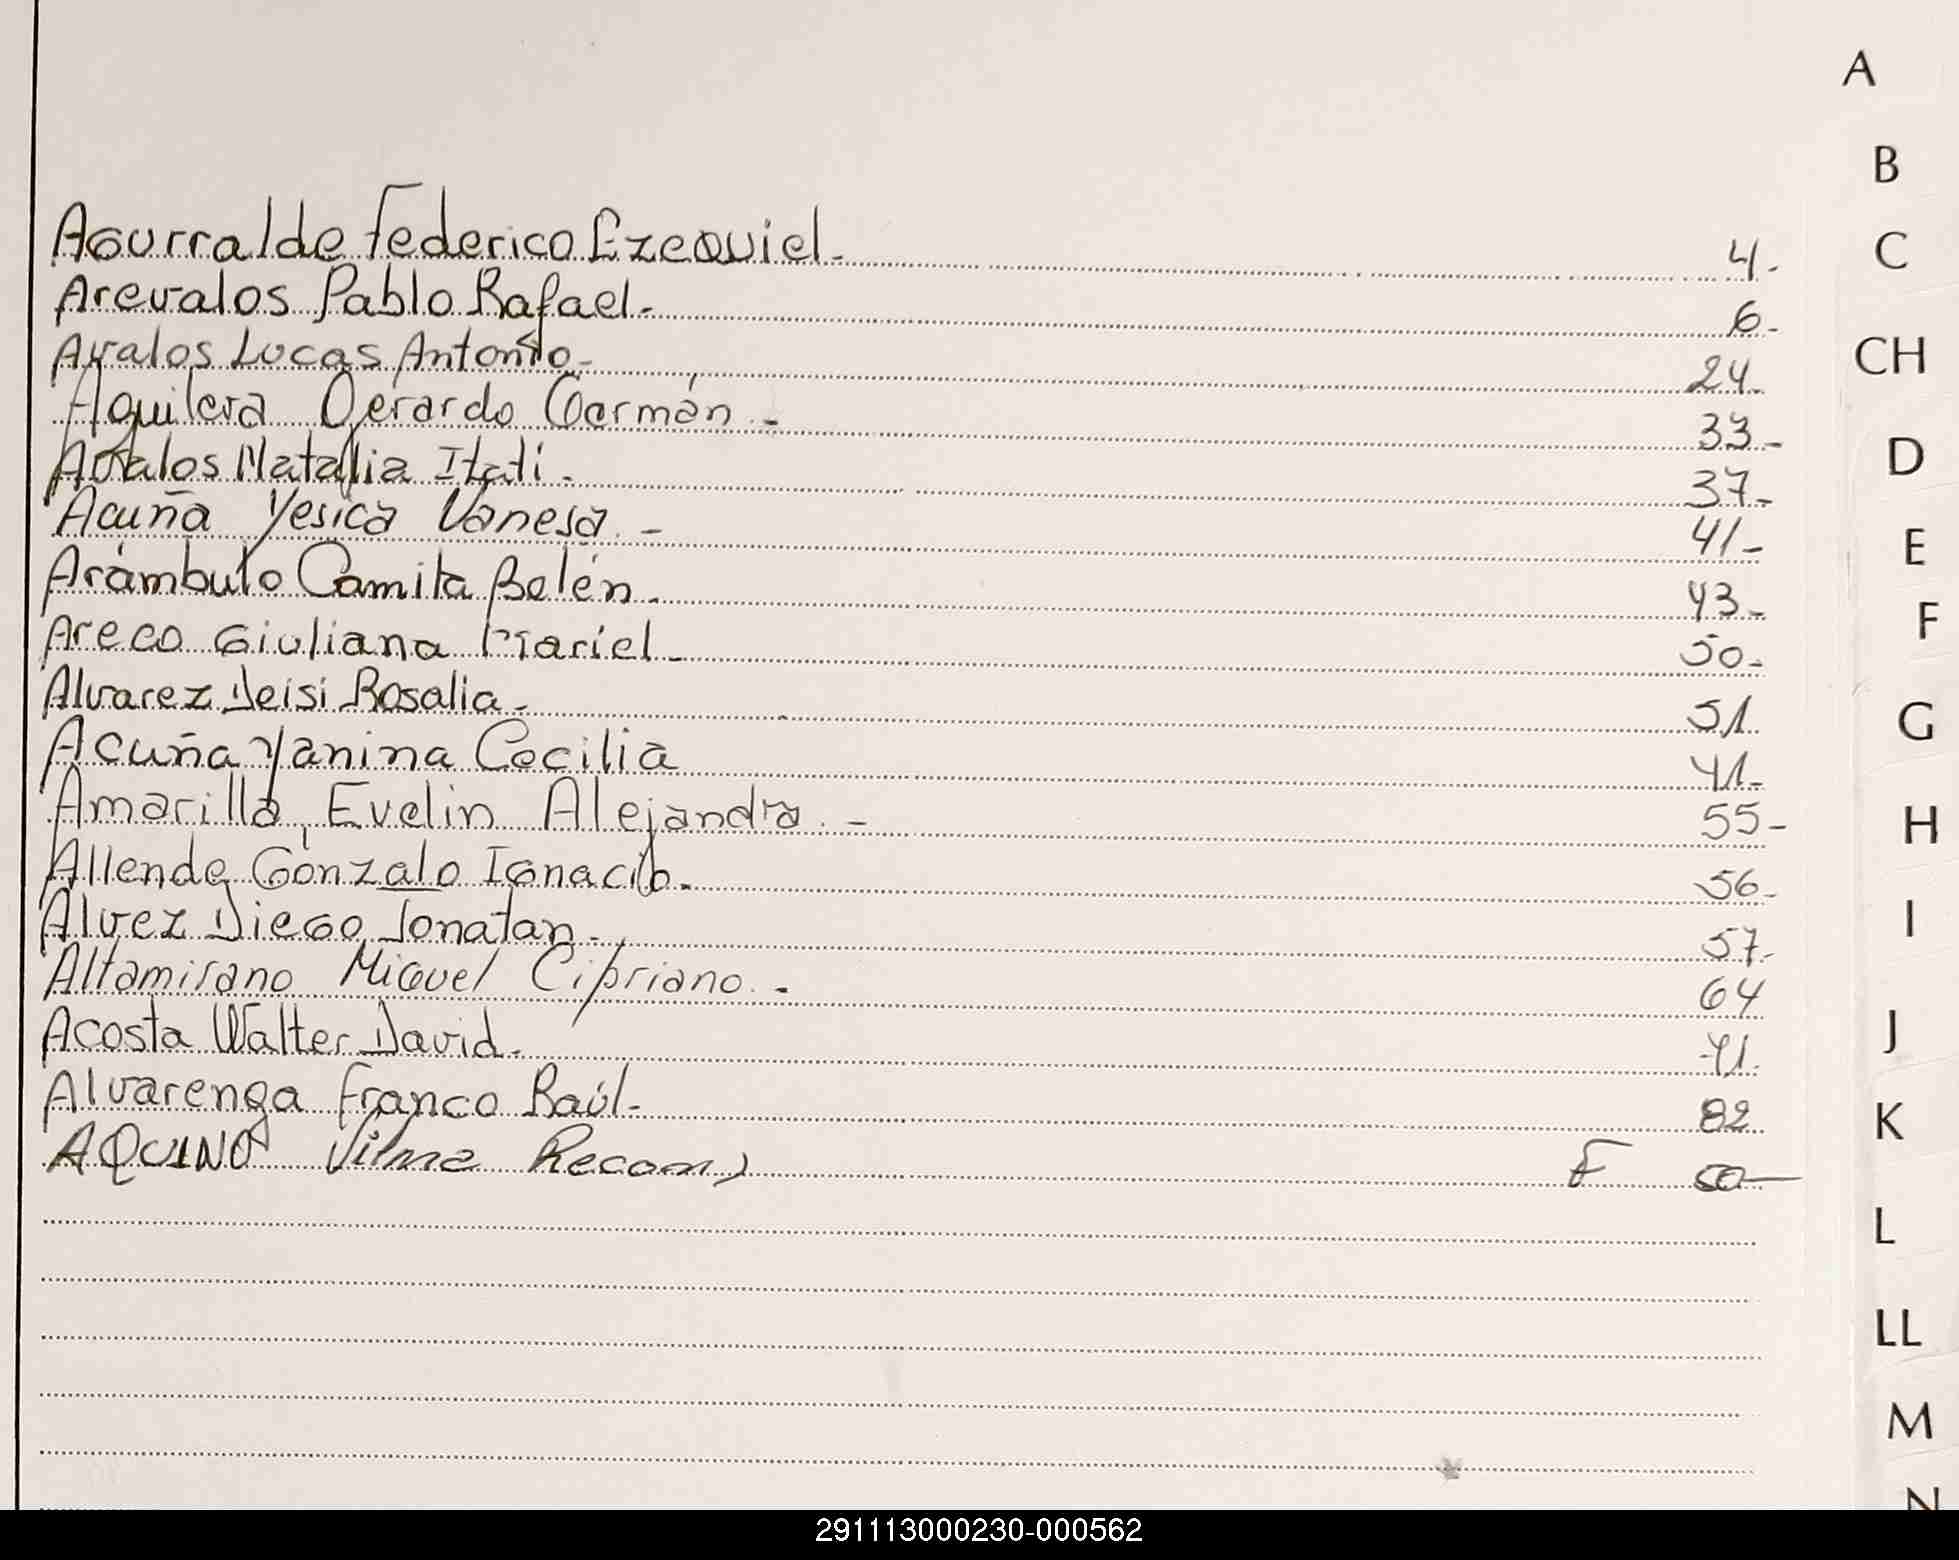 Agurralde Federico Ezequiel. 4.
Arevalos Pablo Rafael. 6.
Avalos Lucas Antonio. 24.
Aguilera Gerardo Germán - 33.
Avalos Natalia Itatí. 37.
Acuña Yesica Vanesa. - 41-
Arámbulo Camila Belén. 43-
Areco Giuliana Mariel. 50.
Alvarez Deisi Rosalia. 51.
Acuña Yanina Cecilia 41.
Amarilla, Evelin Alejandra. - 55-
Allende Gonzalo Ignacio. 56.
Alvez Diego Jonatan. 57.
Altamirano Miguel Cipriano. - 64
Acosta Walter David. 41.
Alvarenga Franco Raúl. 82
AQUINO Vilma F 50-
A
B
C
CH
D
E
F
G
H
I
J
K
L
LL
M
N
291113000230-000562